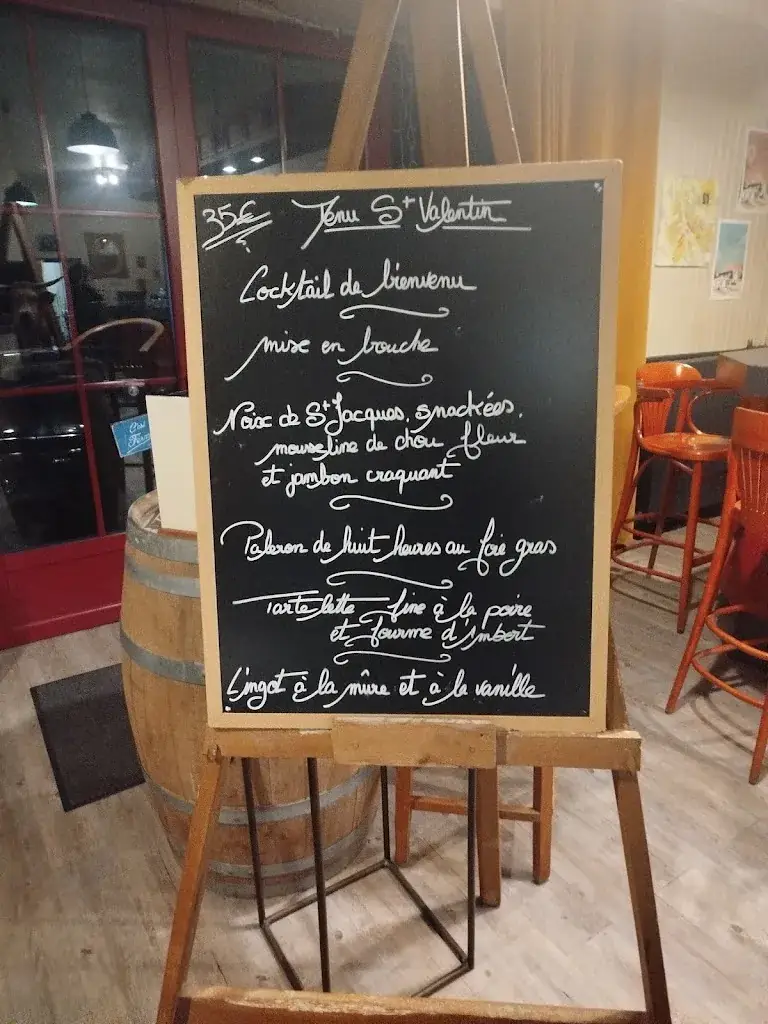 35€ Menu St Valentin
Cocktail de bienvenu
mise en bouche
Noix de St Jacques, snackées,
mousseline de chou fleur
et jambon craquant
Paleron de huit heures au foie gras
Tartelette fine à la poire
et fourme d'Ambert
Lingot à la mûre et à la vanille